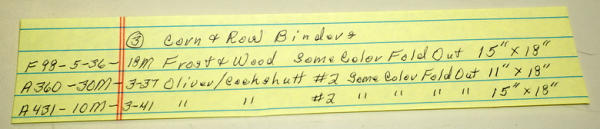 ③ Corn & Row Binders
F98-5-36-18M Frost & Wood Some Color Fold Out 15" x 18"
A360-30M-3-37 Oliver/Cockshutt #2 Some Color Fold Out 11" x 18"
A431-10M-3-41 " " #2 " " " " 15" x 18"